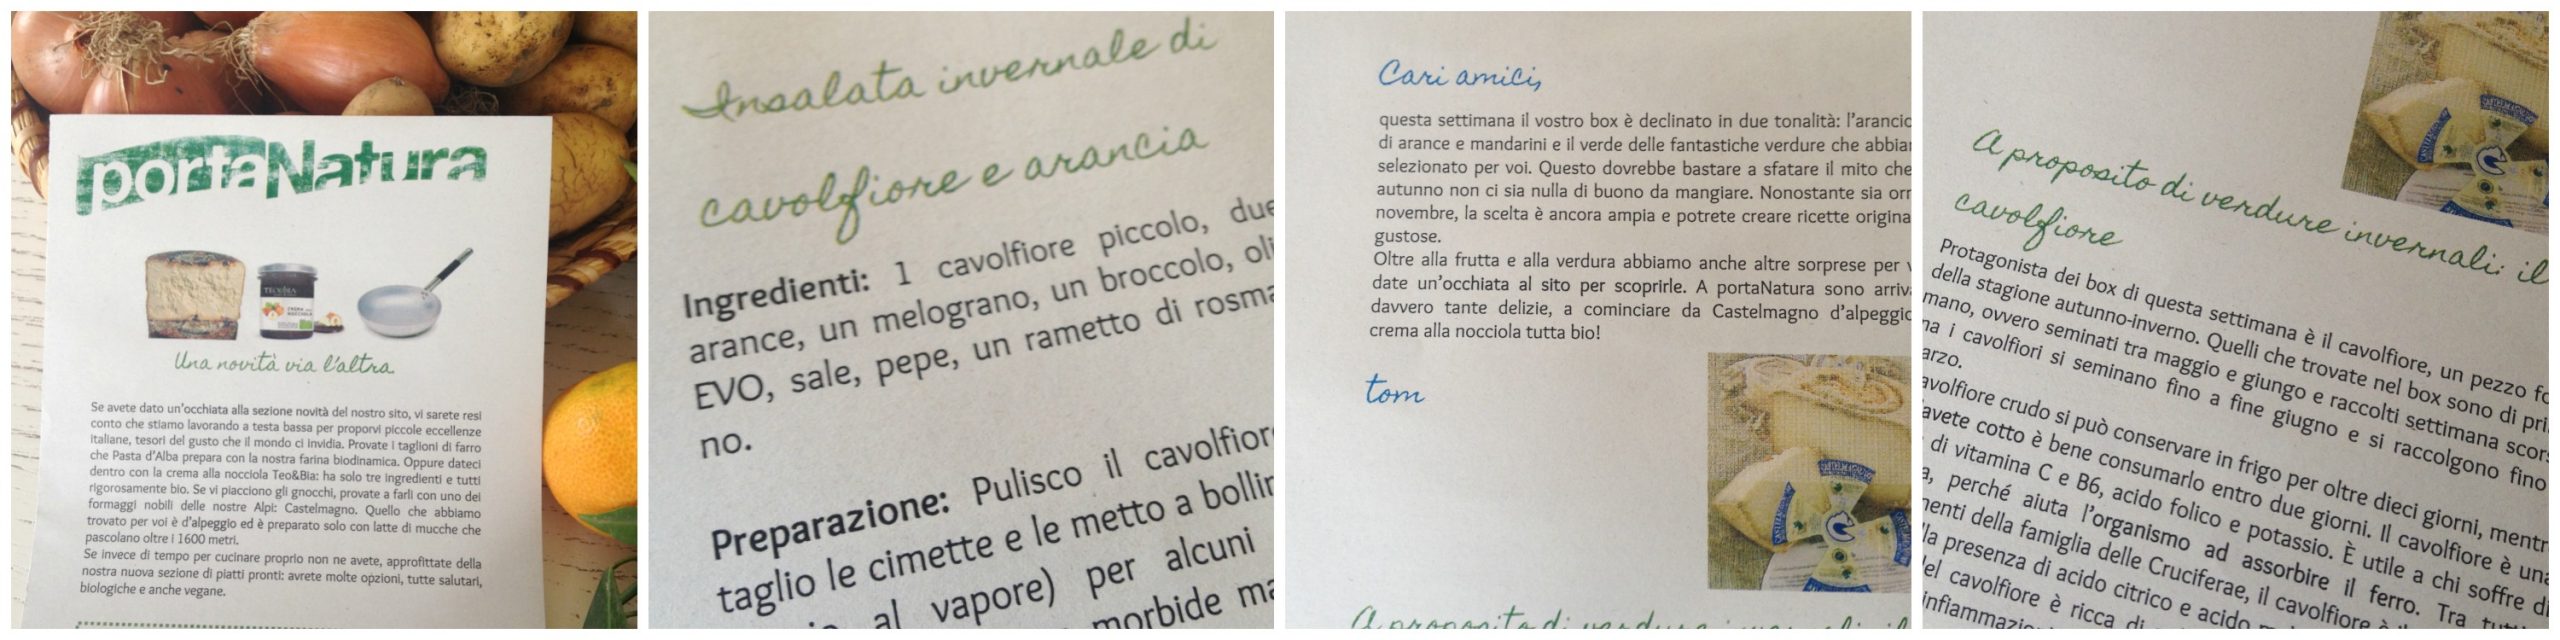 portaNatura
Una novità via l'altra
Se avete dato un'occhiata alla sezione novità del nostro sito, vi sarete resi
conto che stiamo lavorando a testa bassa per proporvi piccole eccellenze
italiane, tesori del gusto che il mondo ci invidia. Provate i taglioni di farro
che Pasta d'Alba prepara con la nostra farina biodinamica. Oppure dateci
dentro con la crema alla nocciola Teo&Bia: ha solo tre ingredienti e tutti
rigorosamente bio. Se vi piacciono gli gnocchi, provate a farli con uno dei
formaggi nobili delle nostre Alpi: Castelmagno. Quello che abbiamo
trovato per voi è d'alpeggio ed è preparato solo con latte di mucche che
pascolano oltre i 1600 metri.
Se invece di tempo per cucinare proprio non ne avete, approfittate della
nostra nuova sezione di piatti pronti: avrete molte opzioni, tutte salutari,
biologiche e anche vegane.
Insalata invernale di
cavolfiore e arancia
Ingredienti: 1 cavolfiore piccolo, due
arance, un melograno, un broccolo, oli
EVO, sale, pepe, un rametto di rosma
no.
Preparazione: Pulisco il cavolfior
taglio le cimette e le metto a bollir
al vapore) per alcuni
morbide ma
Cari amici,
questa settimana il vostro box è declinato in due tonalità: l'arancio
di arance e mandarini e il verde delle fantastiche verdure che abbia
selezionato per voi. Questo dovrebbe bastare a sfatare il mito che
autunno non ci sia nulla di buono da mangiare. Nonostante sia orm
novembre, la scelta è ancora ampia e potrete creare ricette origina
gustose.
Oltre alla frutta e alla verdura abbiamo anche altre sorprese per
date un'occhiata al sito per scoprirle. A portaNatura sono arriv
davvero tante delizie, a cominciare da Castelmagno d'alpeggio
crema alla nocciola tutta bio!
tom
A proposito di verdure invernali: il
A proposito di verdure invernali: il
cavolfiore
Protagonista dei box di questa settimana è il cavolfiore, un pezzo fo
della stagione autunno-inverno. Quelli che trovate nel box sono di pri
mano, ovvero seminati tra maggio e giungo e raccolti settimana scors
na i cavolfiori si seminano fino a fine giugno e si raccolgono fino
arzo.
avolfiore crudo si può conservare in frigo per oltre dieci giorni, mentr
avete cotto è bene consumarlo entro due giorni. Il cavolfiore è una
di vitamina C e B6, acido folico e potassio. È utile a chi soffre di
a, perché aiuta l'organismo ad assorbire il ferro. Tra tutti
menti della famiglia delle Cruciferae, il cavolfiore è il
lla presenza di acido citrico e acido
el cavolfiore è ricca di
infiammazio